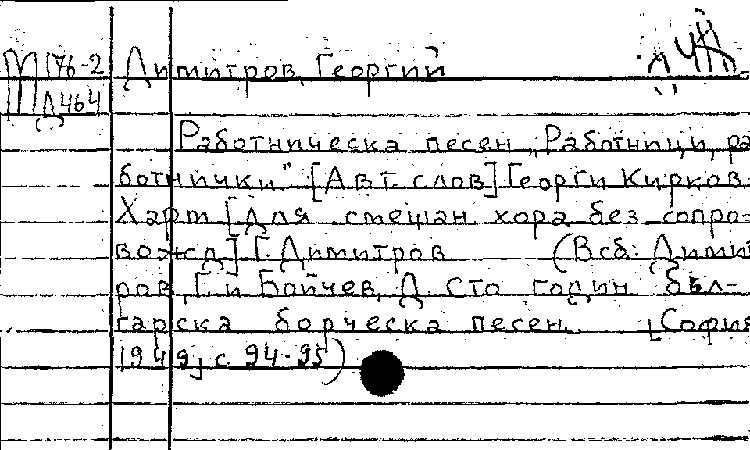 М 176-2 Димитров, Георгий
Д464
Работническа песен „Работници, ра
ботнички" [Авт. слов] Георги Кирков.
Харм [для смешан хора без сопро-
вожд] Г. Димитров (Всб: Димит
ров, Г. и Бойчев, Д. Сто годин бъл-
гарска борческа песен. [София
1949] с. 94-95)